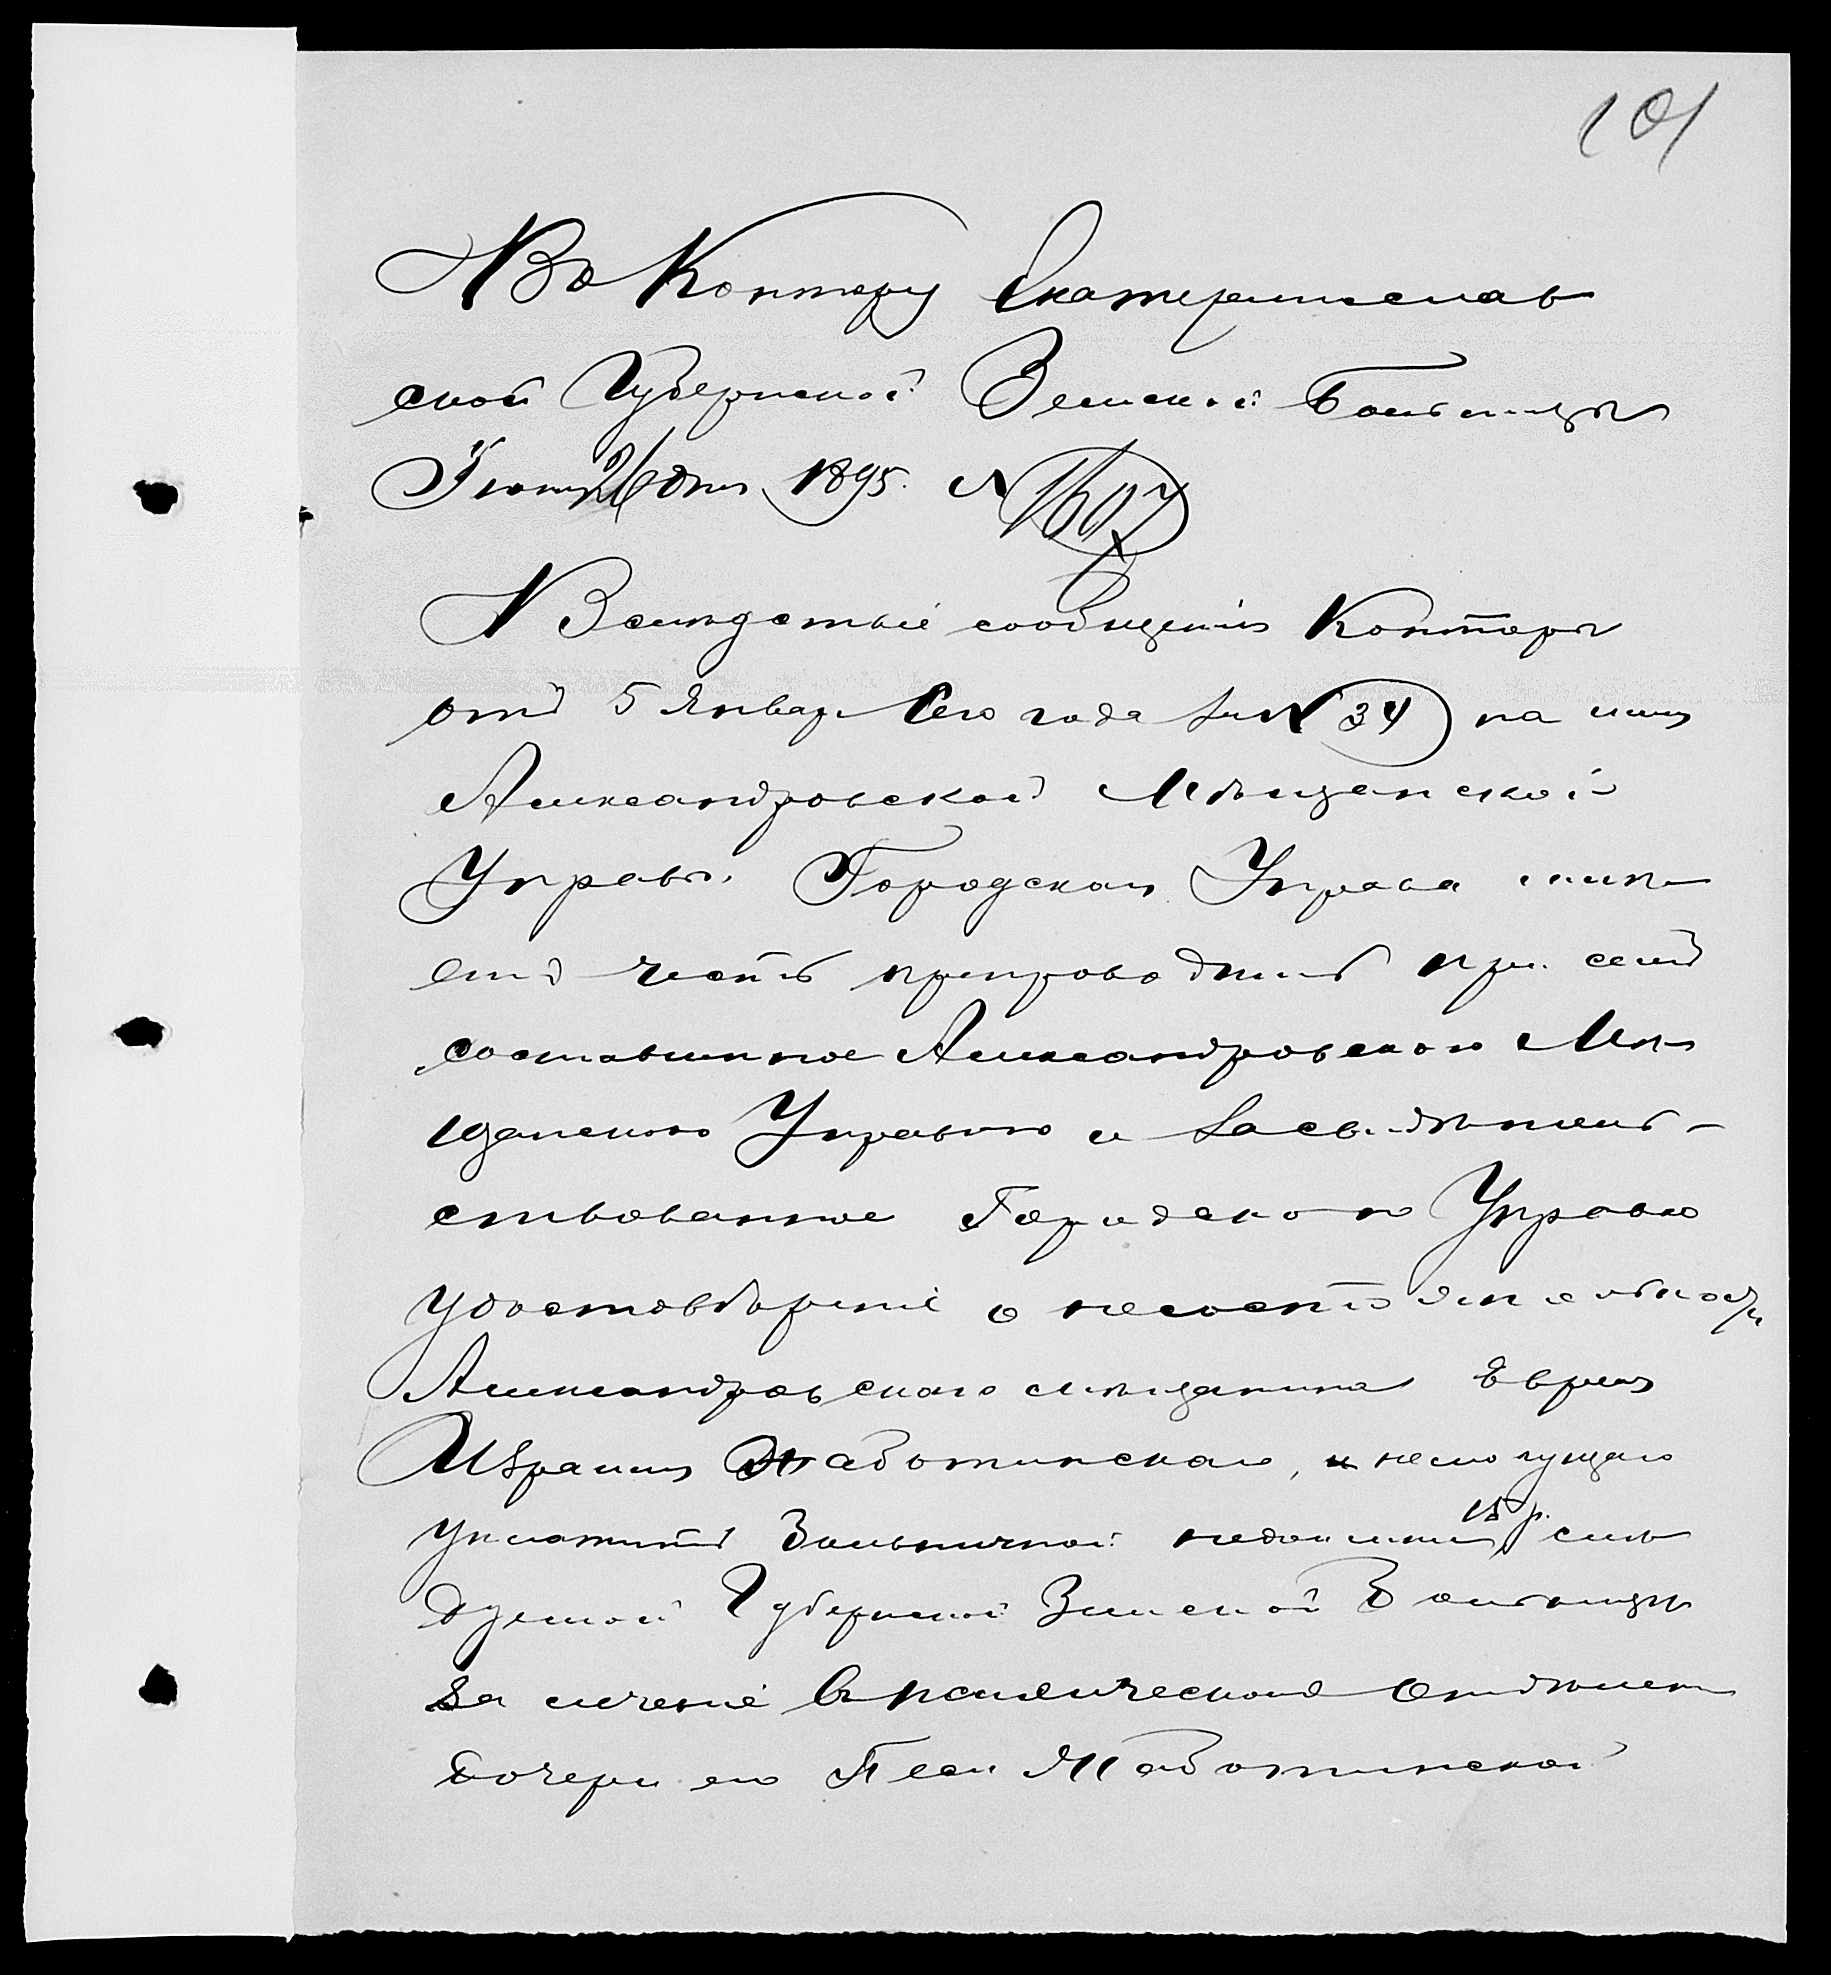 101
Въ Контору Екатеринослав
ской Губернской Земской Больницы
Іюня 26 дня 1895. № 1607
Вслѣдствіе сообщенія Конторы
отъ 5 Января сего года за № 34 на имя
Александровской Мѣщанской
Управы, Городская Управа имѣ
етъ честь препроводить при семъ
составленное Александровскою Мѣ
щанскою Управою и засвидѣтель-
ствованное Городскою Управою
удостовѣреніе о несостоятельности
Александровскаго мѣщанина еврея
Израиля Жаботинскаго, немогущаго
уплатить больничной недоимки 15 р. слѣ
дуемой Губернской Земской Больницы
за леченіе въ психическомъ отдѣлен
дочери его Песи Жаботинской